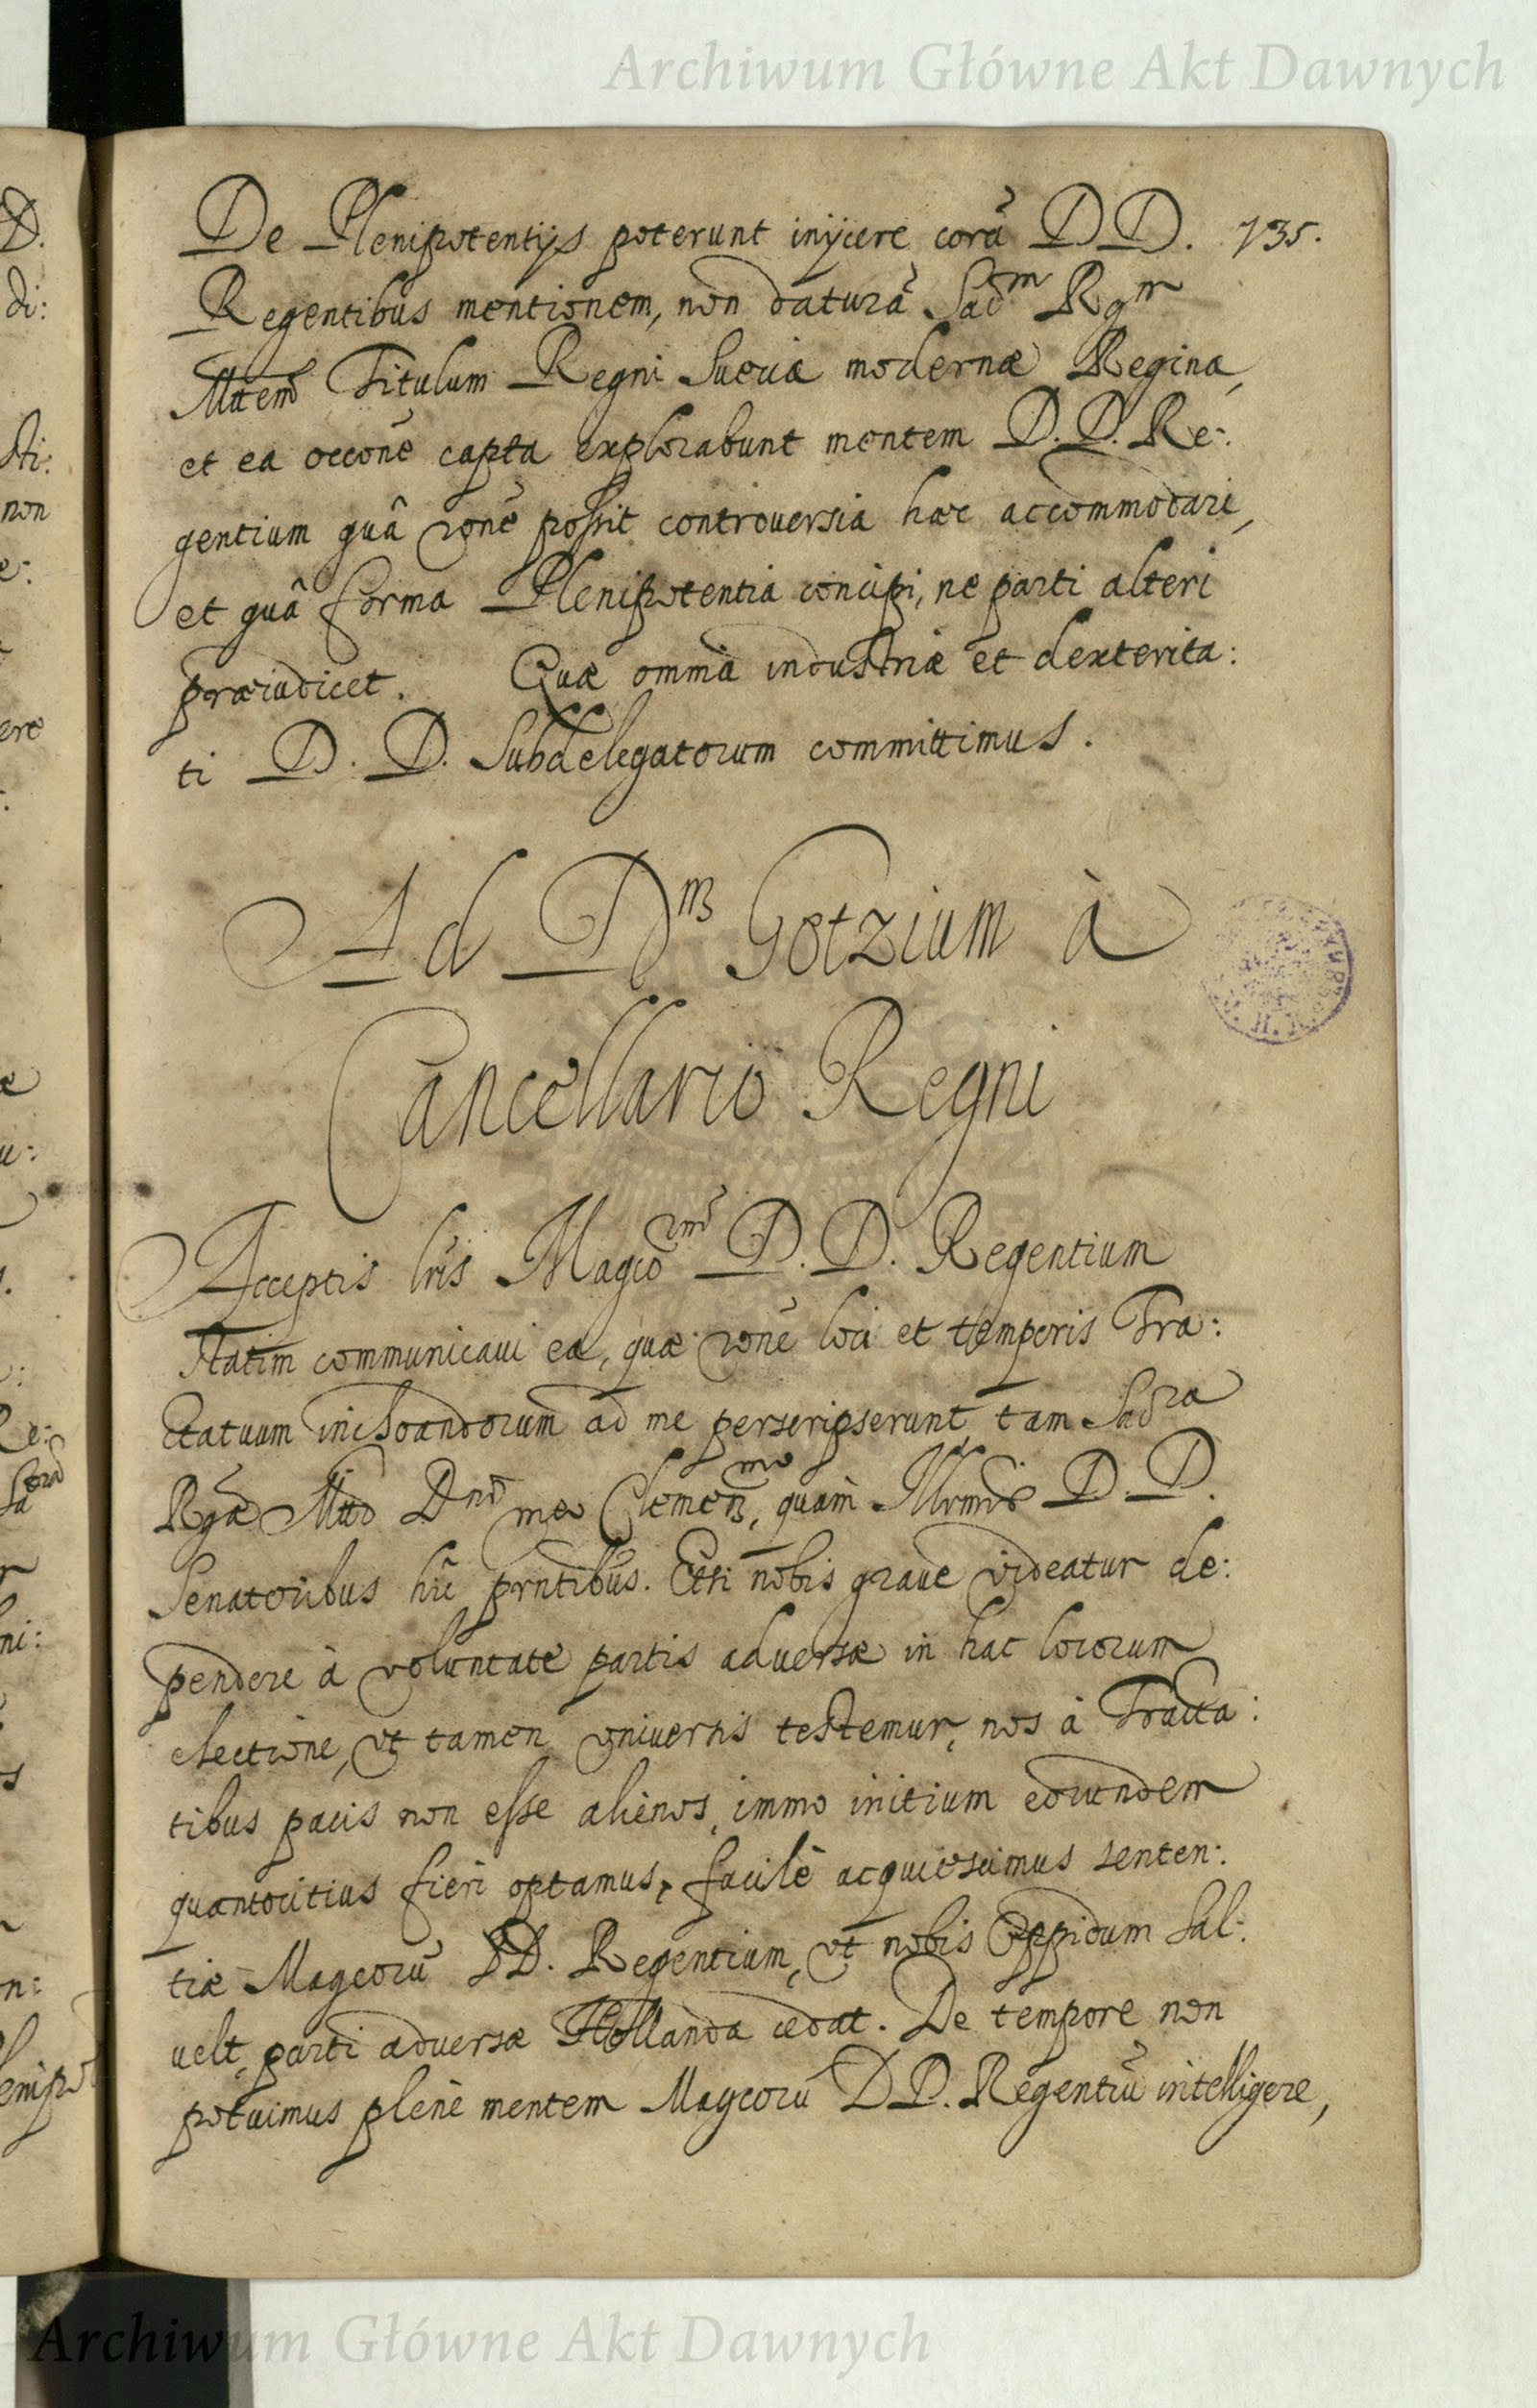 Archiwum Główne Akt Dawnych
De Plenipotentijs poterunt inijcere corā DD. 735.
Regentibus mentionem, non daturā Sacm Rgm
Mttem Titulum Regni Sueciæ modernæ Reginæ,
et ea occone capta explorabunt mentem D.D. Re:
gentium quâ rone possit controuersia hæc accommodari,
et quâ forma Plenipotentia concipi, ne parti alteri
præiudicet. Quæ omnia industriæ et dexterita:
ti D. D. Subdelegatorum committimus.
Ad Dnm Gotzium à
Cancellario Regni
Acceptis lris Magcorum D.D. Regentium
Statim communicaui ea, quæ rone loci et temporis Tra:
ctatuum inchoandorum ad me perscripserunt, tam Sacra
Rgæ Mtti Dno meo Clemenmo, quàm Illrmis D. D.
Senatoribus hic prntibus. Etsi nobis graue videatur de:
pendere à voluntate partis aduersæ in hac locorum
electione, vt tamen vniuersis testemur, nos à Tracta:
tibus pacis non esse alienos, immo initium eorundem
quantocitius fieri optamus, facilè acquiescimus senten:
tiæ Magcorū DD. Regentium, vt nobis Oppidum Sal:
uelt, parti aduersæ Hollanda cedat. De tempore non
potuimus plenè mentem Magcorū DD. Regentiū intelligere,
Archiwum Główne Akt Dawnych